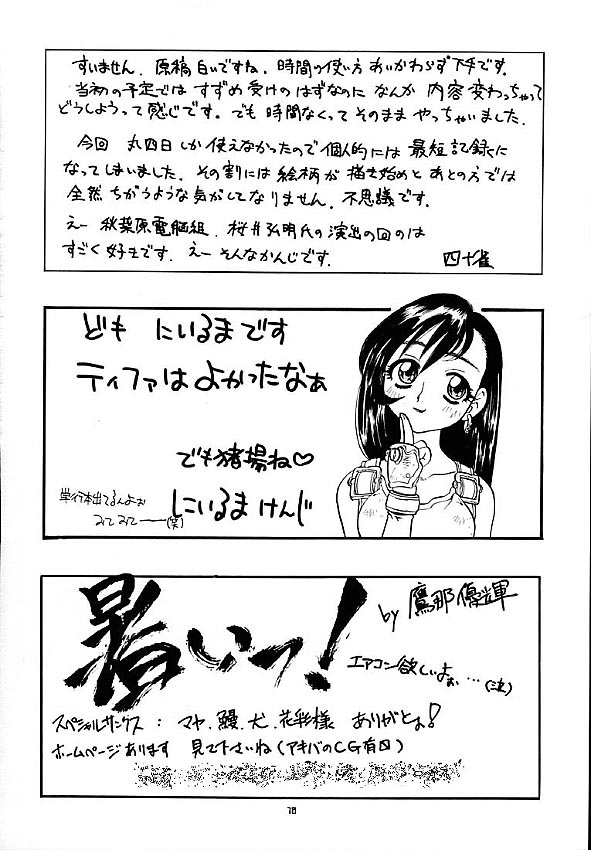 すいません、原稿白いですね。時間の使い方あいかわらず下手です。
当初の予定では すずめ受けのはずなのに なんか 内容変わっちゃって
どうしようって感じです。でも 時間なくって そのまま やっちゃいました。
今回 丸四日しか使えなかったので個人的には 最短記録に
なってしまいました。その割には絵柄が 描き始めと あとの方では
全然 ちがうような気がしてなりません。不思議です。
えー 秋葉原電脳組、桜井弘明氏の演出の回のは
すごく 好きです。えー そんなかんじです。
四十雀
ども にいるまです
ティファは よかったなぁ
でも猪場ね♡
単行本出てるんよぉ
みてみてー(笑)
にいるま けんじ
暑いっ!
by 鷹那優輝
エアコン欲しいよぉ…(泣)
スペシャルサンクス : マヤ、鰻、犬、花彩様 ありがとよ!
ホームページあります 見て下さいね(アキバのCG有□)
78